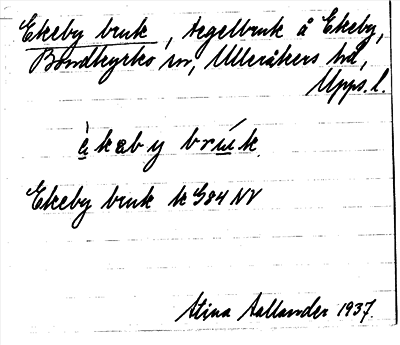 Ekeby bruk, tegelbruk å Ekeby,
Bondkyrko sn, Ulleråkers hd,
Upps. l.
èkeby brúk.
Ekeby bruk k G84 NV
Stina Hallander 1937.